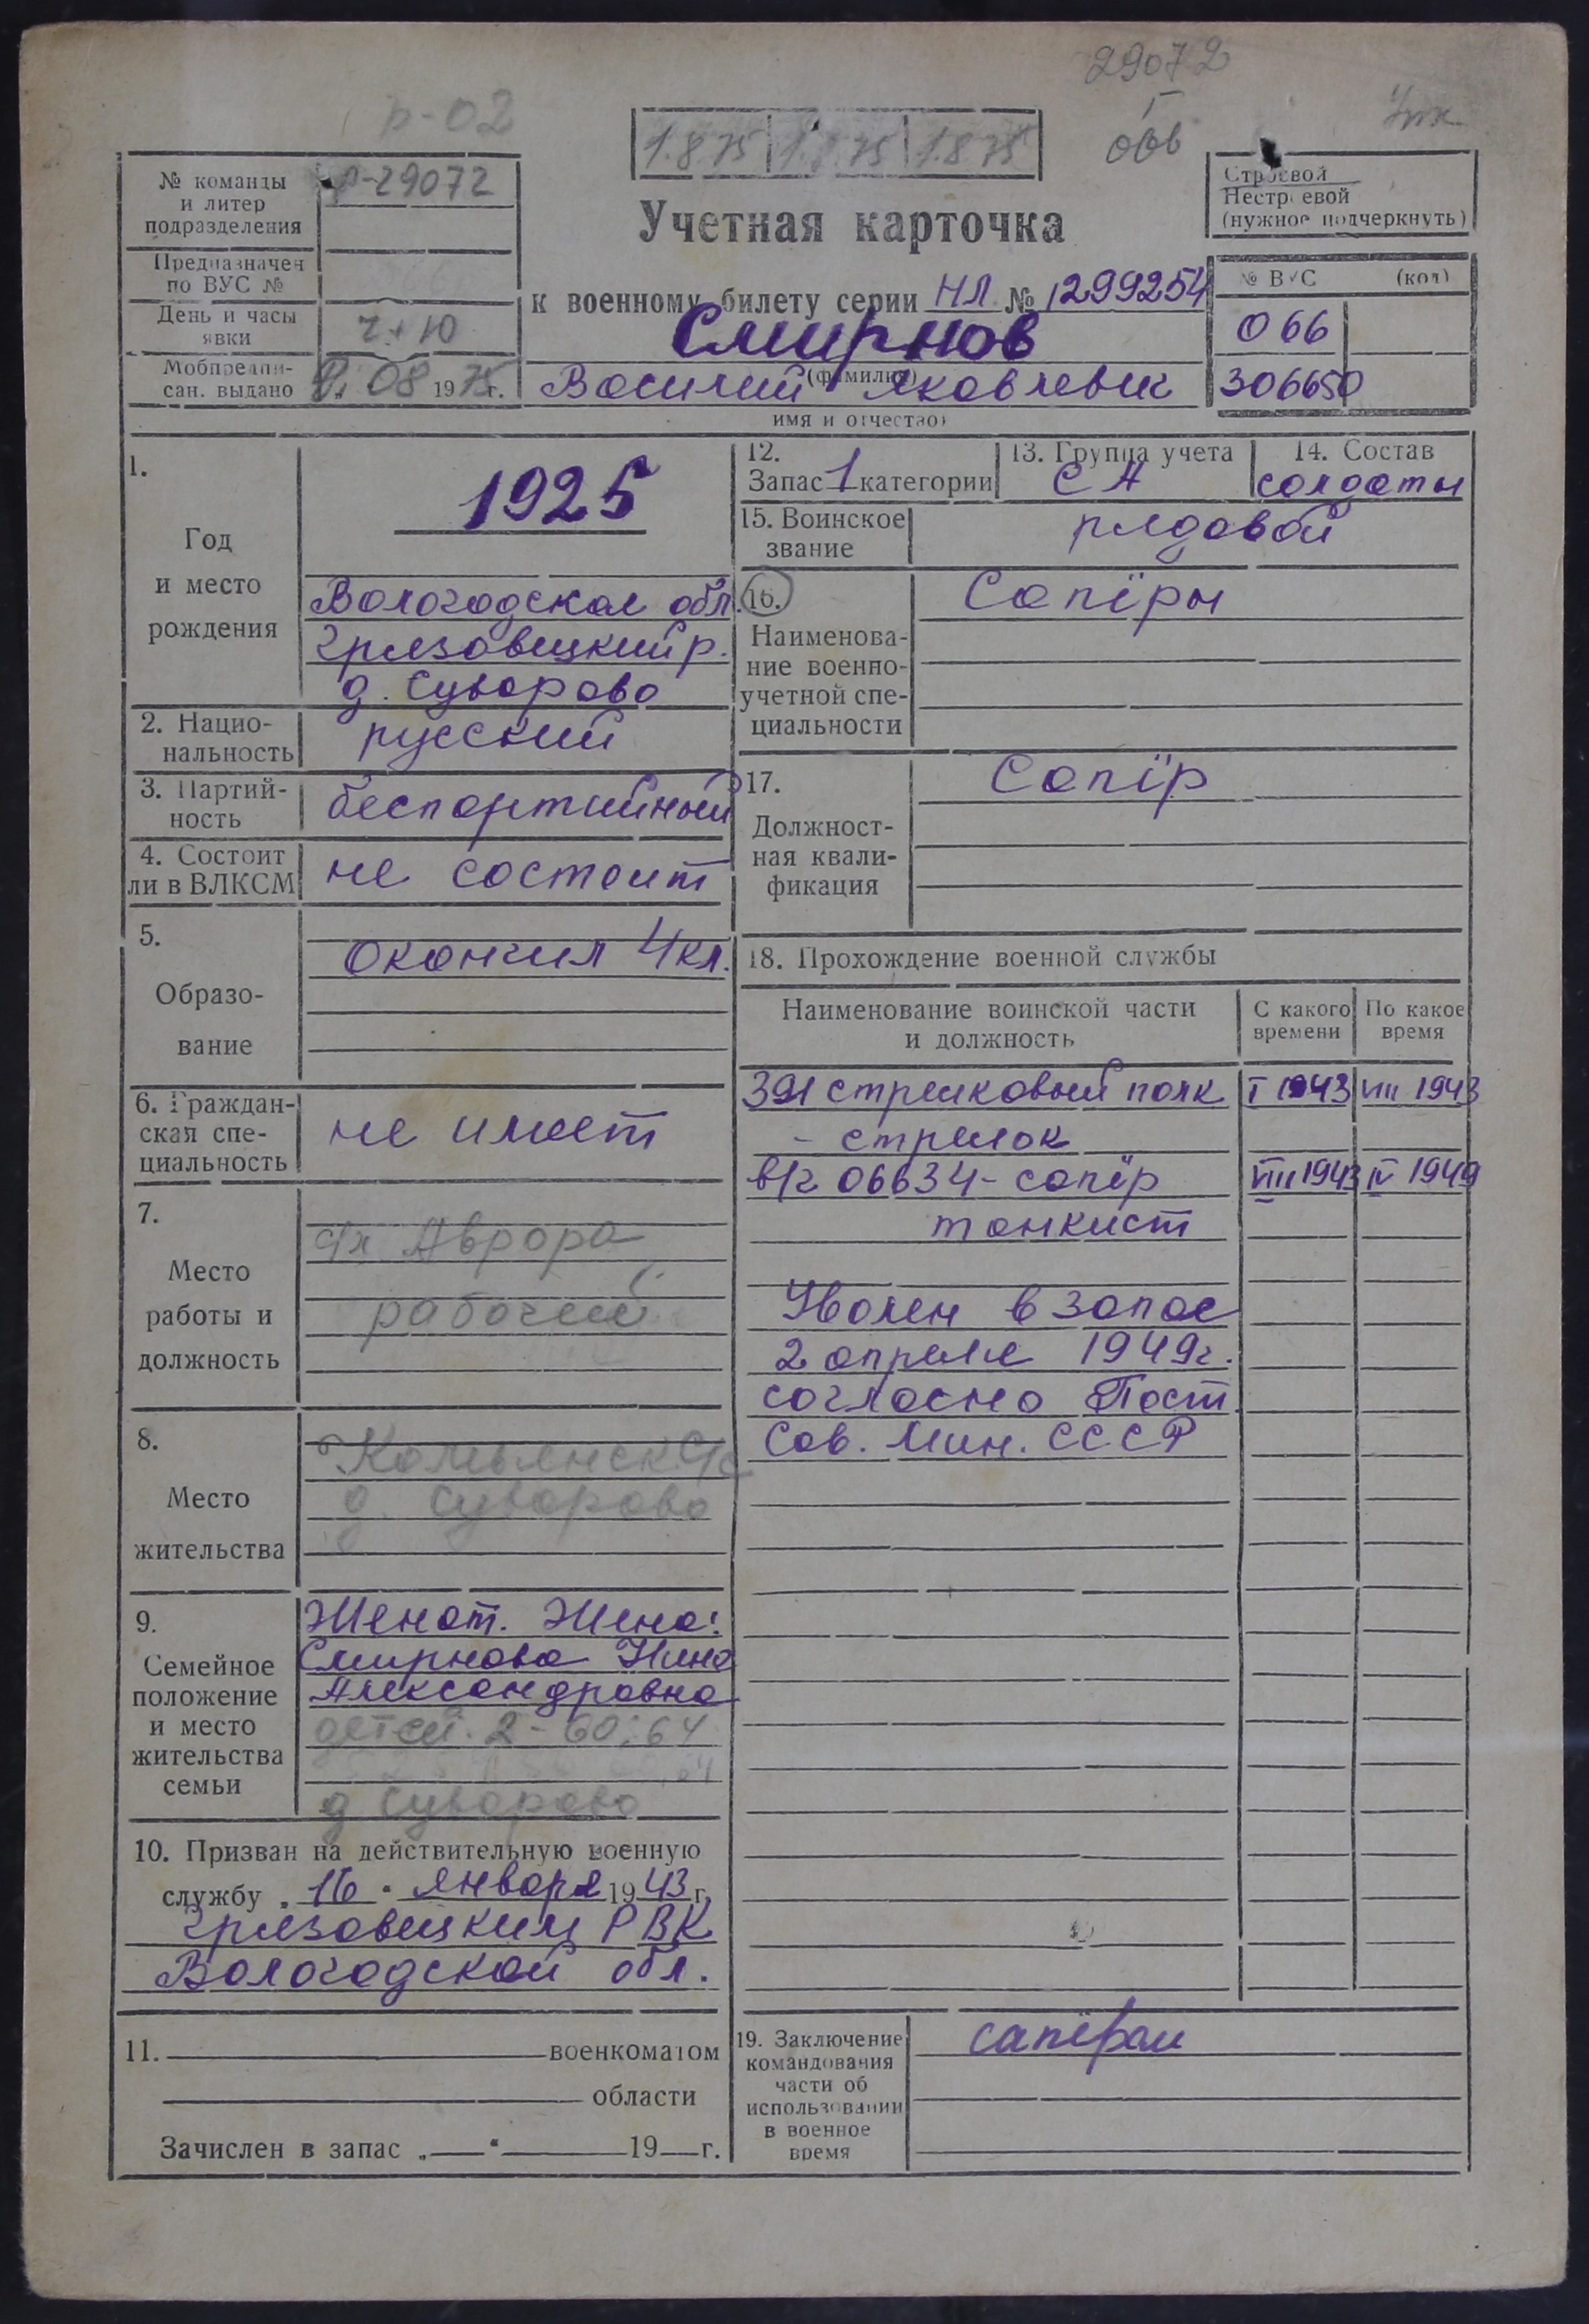 29072
р-02
1.8.75 1.8.75 1.8.75
№ команды и литер подразделения
р-29072
Строевой
Нестроевой
(нужное подчеркнуть)
Учетная карточка
Предназначен по ВУС №
к военному билету серии НЛ № 1299254
№ ВУС (код)
День и часы явки
Смирнов
066
(фамилия)
Мобпредписан. выдано
08 1975г.
Василий Яковлевич
306650
имя и отчество)
1.
Год и место рождения
1925
Вологодская обл.
Грязовецкий р.
д. Суворово
2. Национальность
русский
3. Партийность
беспартийный
4. Состоит ли в ВЛКСМ
не состоит
5.
Образование
Окончил 4кл.
6. Гражданская специальность
не имеет
7.
Место работы и должность
с/х Аврора
рабочий
8.
Место жительства
д. Суворово
9.
Семейное положение и место жительства семьи
Женат. Жена:
Смирнова Нина
Александровна
детей. 2 - 60; 64
д Суворово
10. Призван на действительную военную
службу „16" января 1943 г.
Грязовецким РВК
Вологодской обл.
11. военкоматом
области
Зачислен в запас „ " 19 г.
12.
Запас 1 категории
13. Группа учета
СА
14. Состав
солдаты
15. Воинское звание
рядовой
16.
Наименование военно-учетной специальности
Сапёры
17.
Должностная квалификация
Сапёр
18. Прохождение военной службы
Наименование воинской части и должность
С какого времени
По какое время
391 стрелковый полк I 1943 VIII 1943
- стрелок
в/г 06634 - сапёр VIII 1943 IV 1949
танкист
Уволен в запас
2 апреля 1949г.
согласно Пост.
Сов. Мин. СССР
19. Заключение командования части об использовании в военное время
сапёром